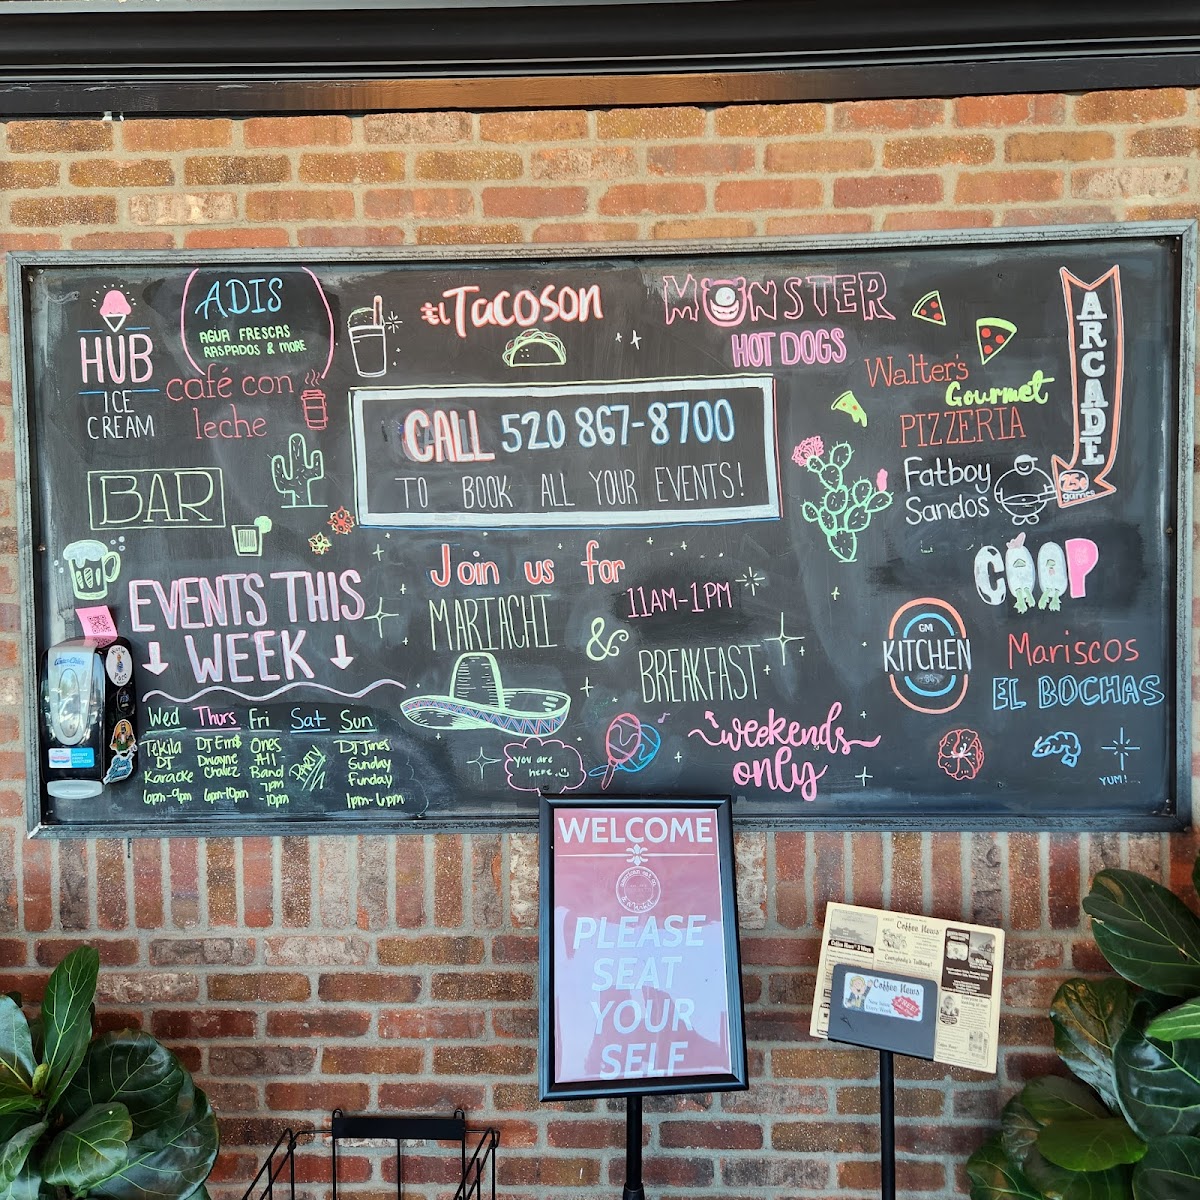 HUB
ICE
CREAM
ADIS
AGUA FRESCAS
RASPADOS & MORE
café con
leche
El Tacoson
MONSTER
HOT DOGS
Walter's
Gourmet
PIZZERIA
ARCADE
25¢
games
CALL 520 867-8700
TO BOOK ALL YOUR EVENTS!
BAR
Fatboy
Sando's
COOP
GM
KITCHEN
Mariscos
EL BOCHAS
YUM!
EVENTS THIS
WEEK
Wed Thurs Fri Sat Sun
Tekila
DJ
Karaoke
6pm-9pm
DJ Em$
Dwayne
Chalez
6pm-10pm
Ones
All
Band
7pm
-10pm
PARTY
DJ Jines
Sunday
Funday
1pm-6pm
Join us for
MARIACHI
&
11AM-1PM
BREAKFAST
weekends
only
you are
here
WELCOME
PLEASE
SEAT
YOUR
SELF
Coffee News
Everybody's Talking!
Coffee News